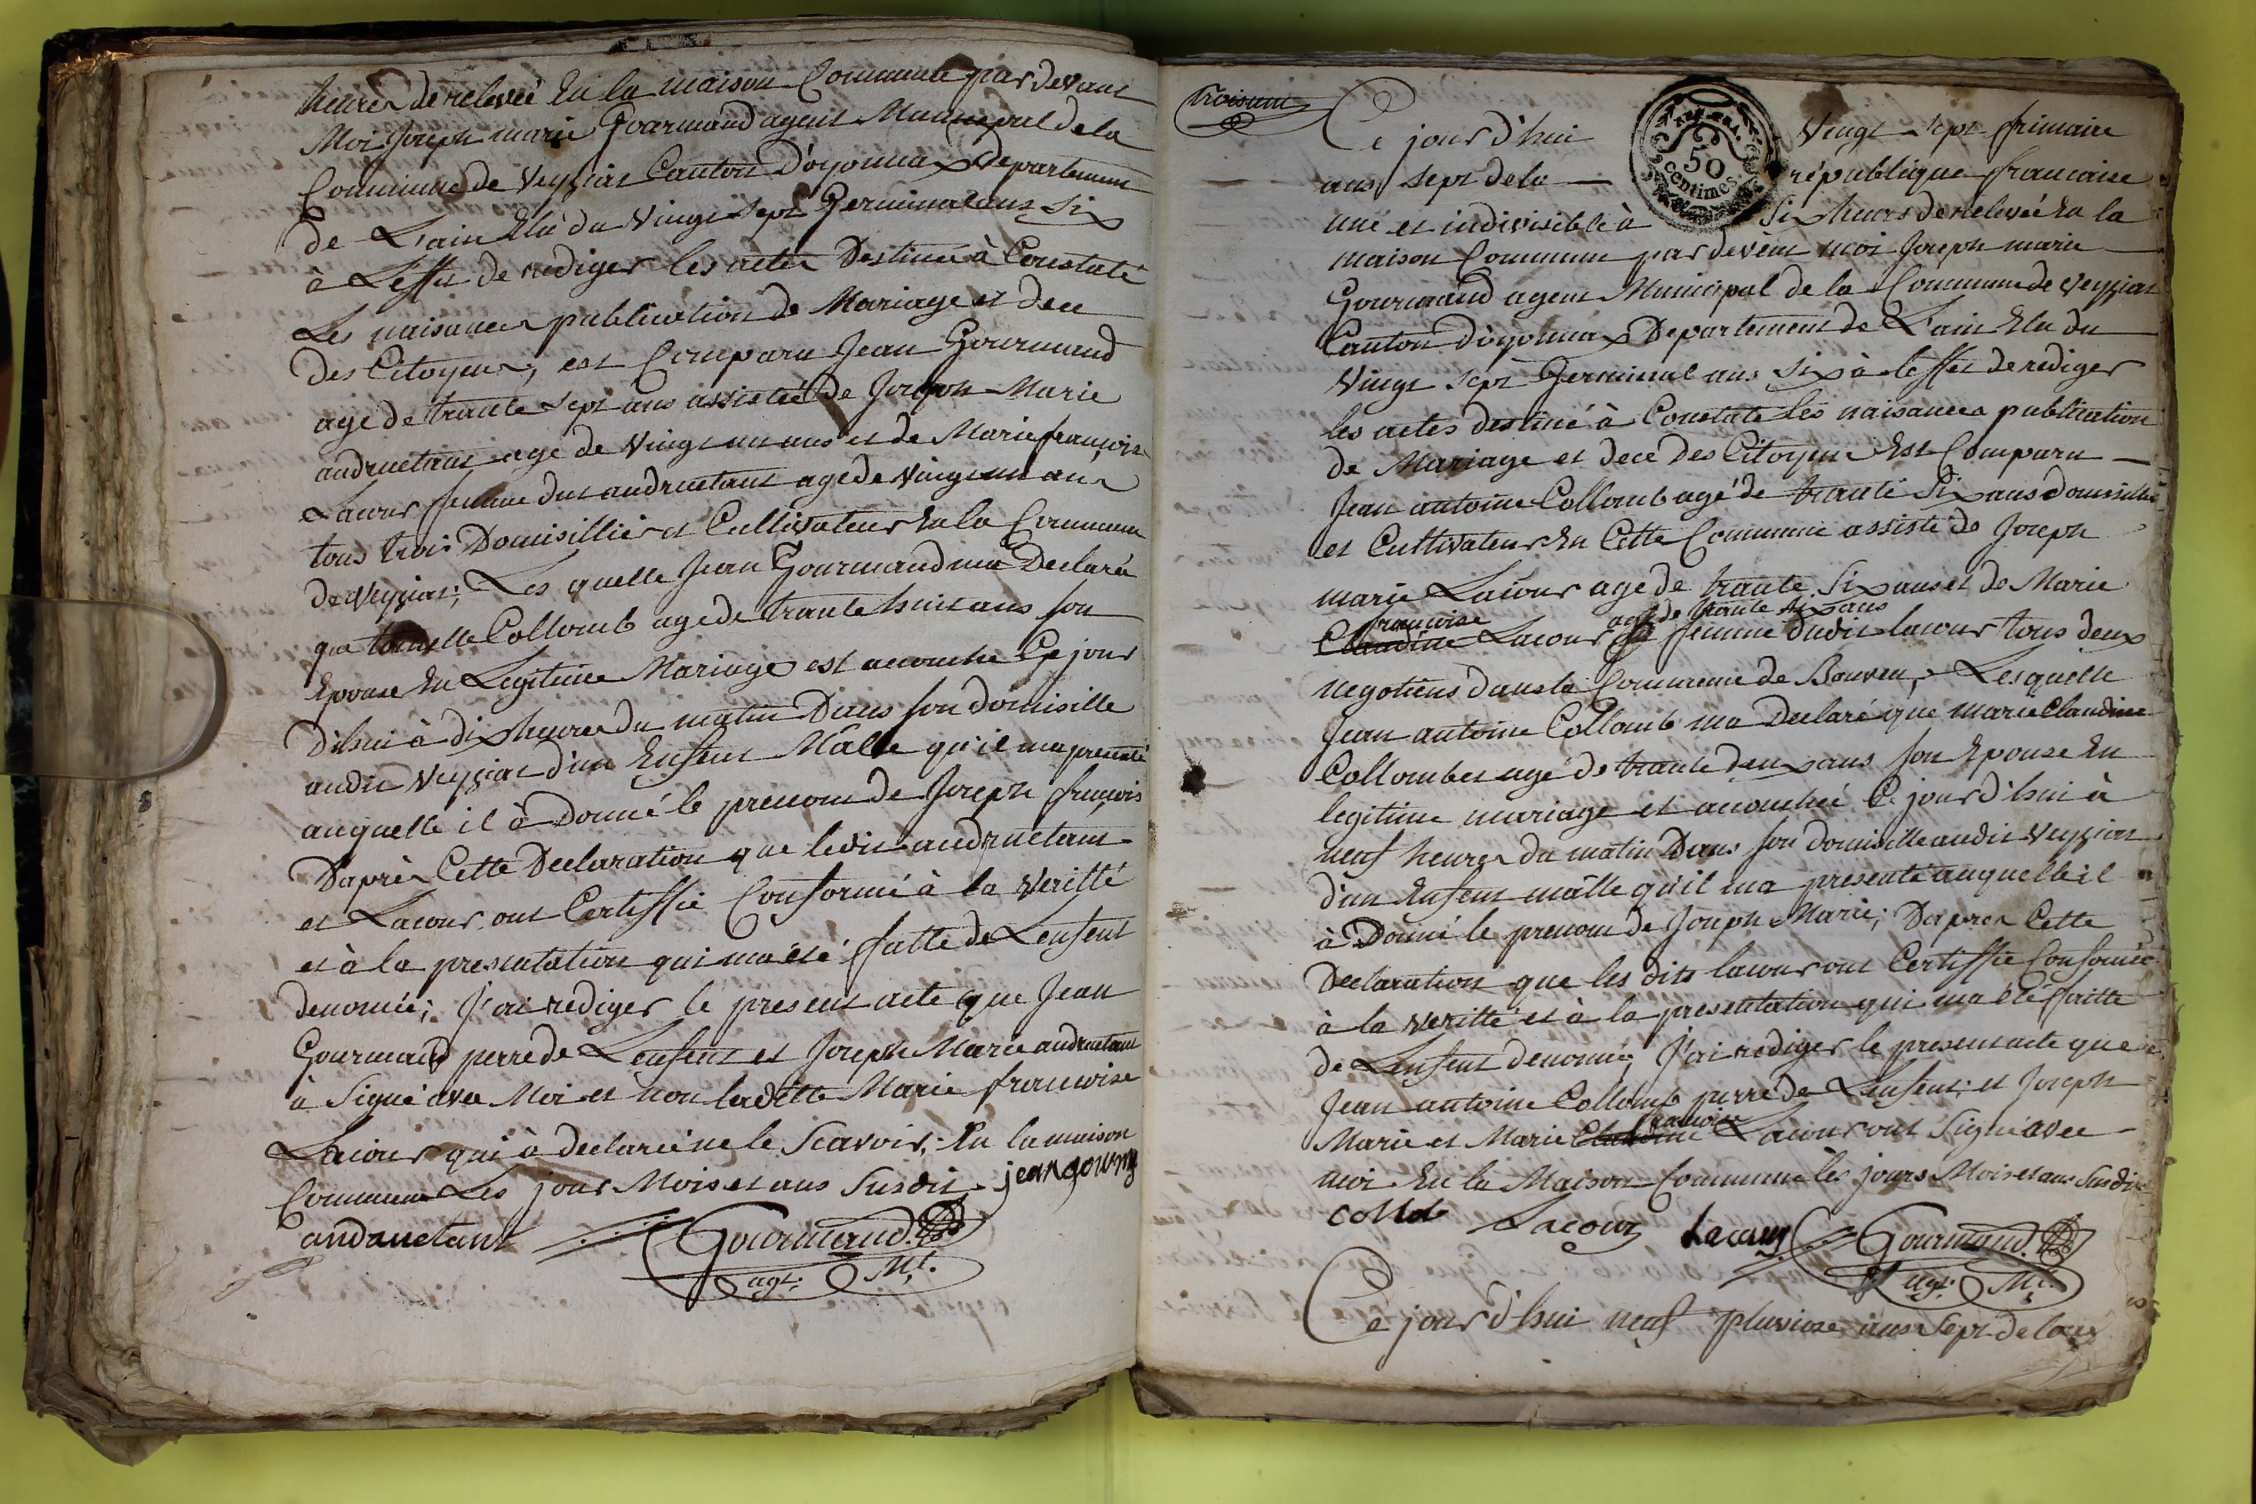 heures de relevée En la maison Commune par devant
Moi Joseph marie Gourmand agent Municipal de la
Commune de Veyziat Canton d'oyonnax Departement
de L'ain Elu du Vingt sept Germinal ans Six
à L'effet de rediger les actes Destiné à Constaté
Les naisances publication de Mariage et dece
des Citoyens, est Comparu Jean Gourmand
age de trante sept ans assistée de Joseph Marie
andruetant age de vingt un ans et de Marie françoise
Lacour femme dut andruetant age de vingt un ans
tous trois Domisilliés et Cultivateurs En la Commune
de Veyziat; Les quelle Jean Gourmand ma Declaré
que Collomb age de trante huit ans son
Epouse En Legitime Mariage est acouche Ce jour
d'hui à dix heures du matin Dans son domisille
audit Veyziat d'un Enfent Malle qu'il ma presenté
auquelle il à Donné le prenom de Joseph françois
D'après Cette Declaration que ledit andruetant
et Lacour ont Certiffié Conformé à la Veritté
et à la presentation qui ma été faitte de Lenfent
denomée; J'ai rediger le present acte que Jean
Gourmand perre de Lenfent et Joseph Marie andruetant
à Signé avec Moi et non laditte Marie françoise
Lacour qui à declarée ne le Scavoir; En la maison
Commune Les jour Mois et ans Susdit jean gourm
andruetant Gourmand
agt. Mt.
troisieme
Ce jour d'hui Vingt sept frimaire
REP. FRA.
50
centimes
ans sept de la république francaise
une et indivisible à Six heures de relevée En la
maison Commune par devent moi Joseph marie
Gourmand agent Municipal de la Commune de Veyziat
Canton d'oyonnax Departement de L'ain Elu du
Vingt sept Germinal ans Six à leffet de rediger
les actes destiné à Constaté Les naisances publication
de Mariage et dece des Citoyens Est Comparu
Jean antoine Collomb agé de trante Six ans domisillié
et Cultivateur En Cette Commune assisté de Joseph
marie Lacour age de trante Six ans et de Marie
francoise age de trante six ans
Claudine Lacour femme dudit lacour tous deux
negotiens dans la Commune de Bouvent, Lesquelle
Jean antoine Collomb ma Declaré que marie Claudine
Collombet agé de trante deux ans son Epouse En
legitime mariage et acouchée Ce jour d'hui à
neuf heures du matin Dans son domisille audit Veyziat
d'un Enfent mâlle qu'il ma presenté auquelle il
à Donné le prenom de Joseph Marie; D'aprés Cette
Declaration que les dits lacour ont Certiffié Conformée
à la veritté et à la presentation qui ma été faitte
de Lenfent denomé; J'ai rediger le present acte que
Jean antoine Collomb perre de Lenfent; et Joseph
francoise
Marie et Marie Claudine Lacour ont Signé avec
moi En la Maison Commune les jours Mois et ans Susdit
Lacour Lacour Gourmand
agt. Mt.
Ce jour d'hui neuf pluviose ans Sept de la